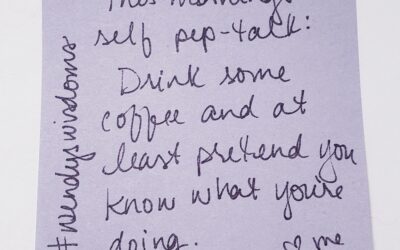 This morning's
self pep-talk:
Drink some
coffee and at
least pretend you
know what you're
doing.
♡ me
#wendyswisdoms